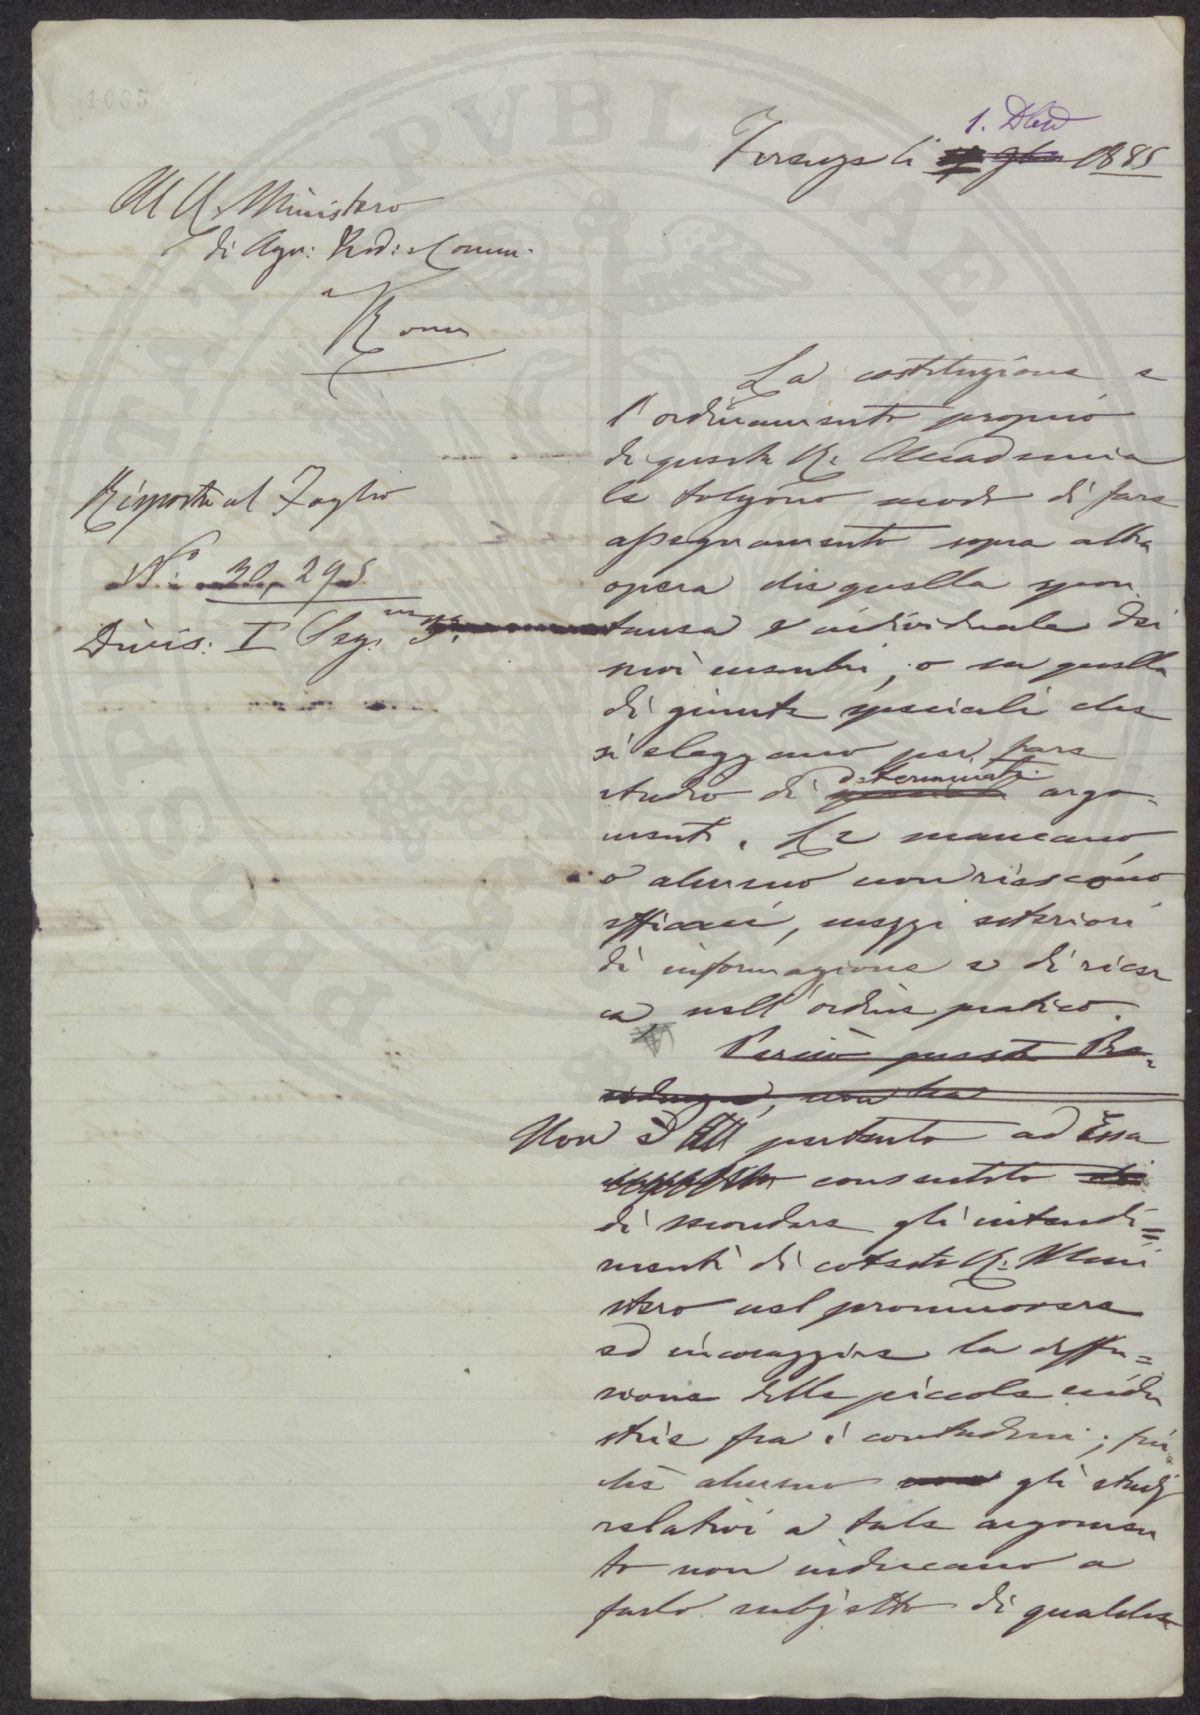 Firenze li 1. Dbre 1885
Al R. Ministero
di Agr: Ind: e Comm.
Roma
Risposta al Foglio
N.° 30,295
Divis: I Sez.
La costituzione e
l'ordinamento proprio
di questa R. Accademia
le tolgono modo di fare
assegnamento sopra altra
opera che quella spon
tanea e individuale dei
suoi membri, o su quella
di giunte speciali che
si eleggano per fare
studio di determinati argo-
menti. Le mancano
o almeno non riescono
efficaci, mezzi esteriori
di informazione e di ricer
ca nell'ordine pratico.
Perciò questa Pre-
sidenza, non ha
Non è pertanto ad Essa
consentito
di secondare gli intendi=
menti di cotesto R. Mini
stero nel promuovere
ed incoraggire la diffu=
sione delle piccole indu
strie fra i contadini; fin
chè almeno gli studj
relativi a tale argomen
to non inducano a
farlo subjetto di qualche